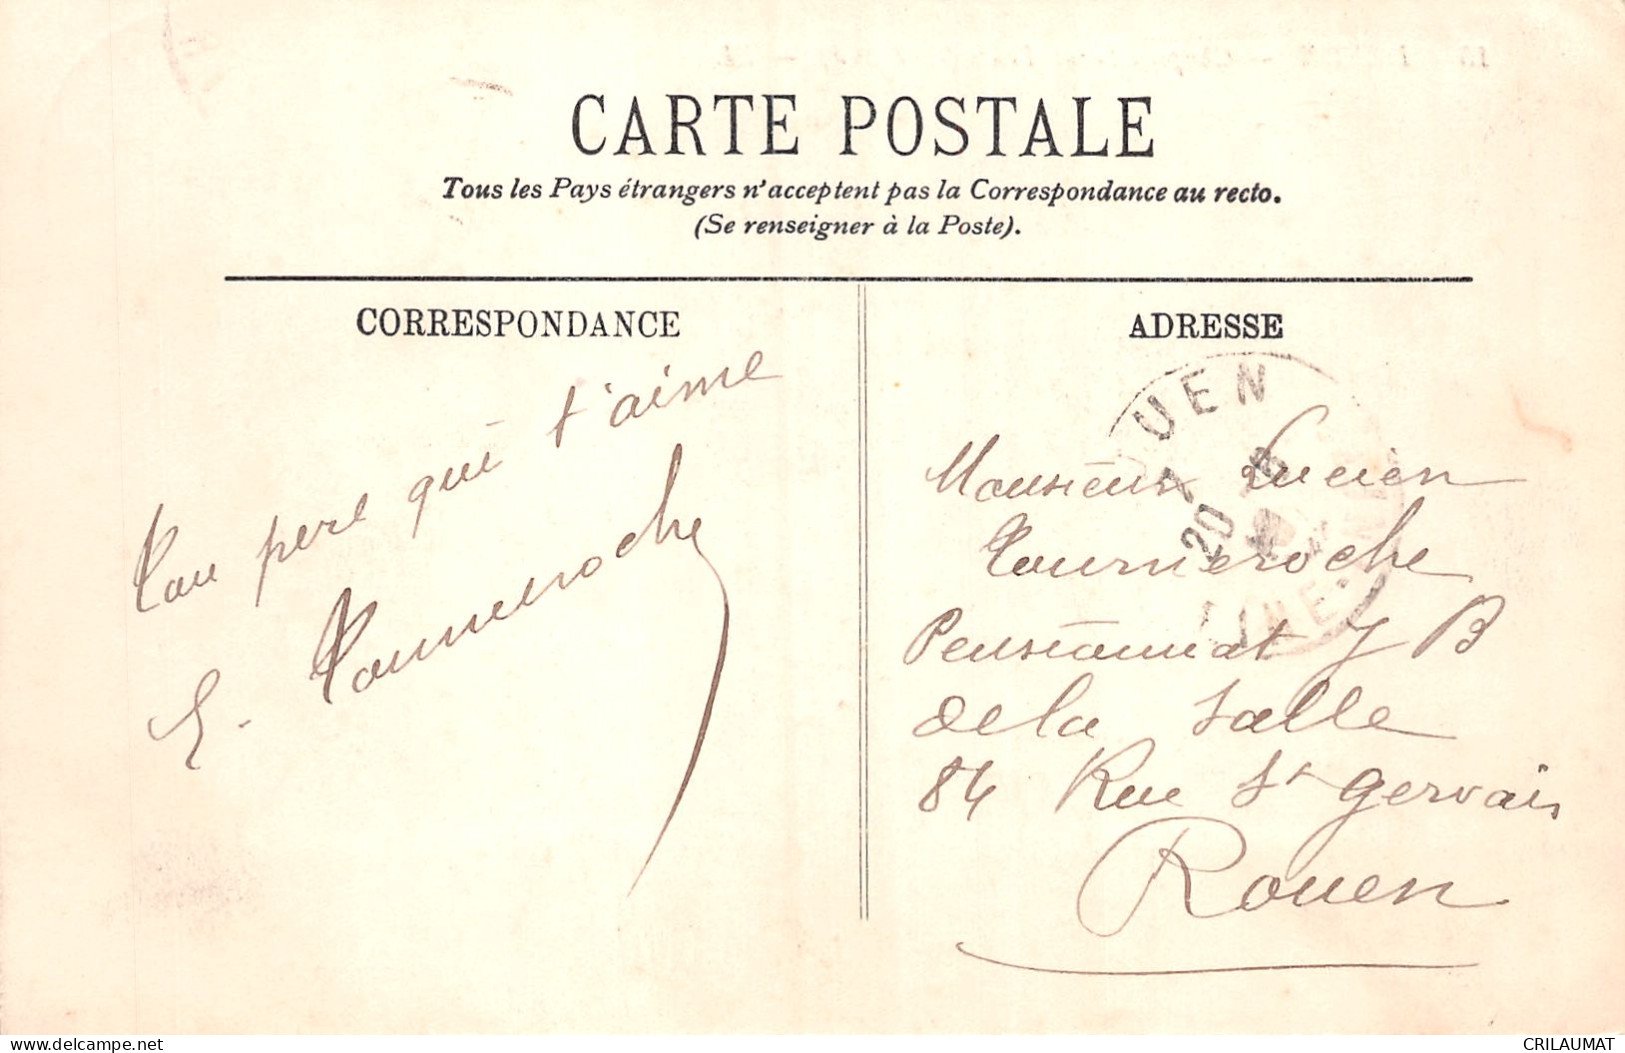 CARTE POSTALE
Tous les Pays étrangers n'acceptent pas la Correspondance au recto.
(Se renseigner à la Poste).
CORRESPONDANCE
Ton pere qui t'aime
E. Tourneroche
ADRESSE
UEN
20
Monsieur Lucien
Tourneroche
Pensionnat J B
de la Salle
84 Rue St gervais
Rouen
delcampe.net
CRILAUMAT